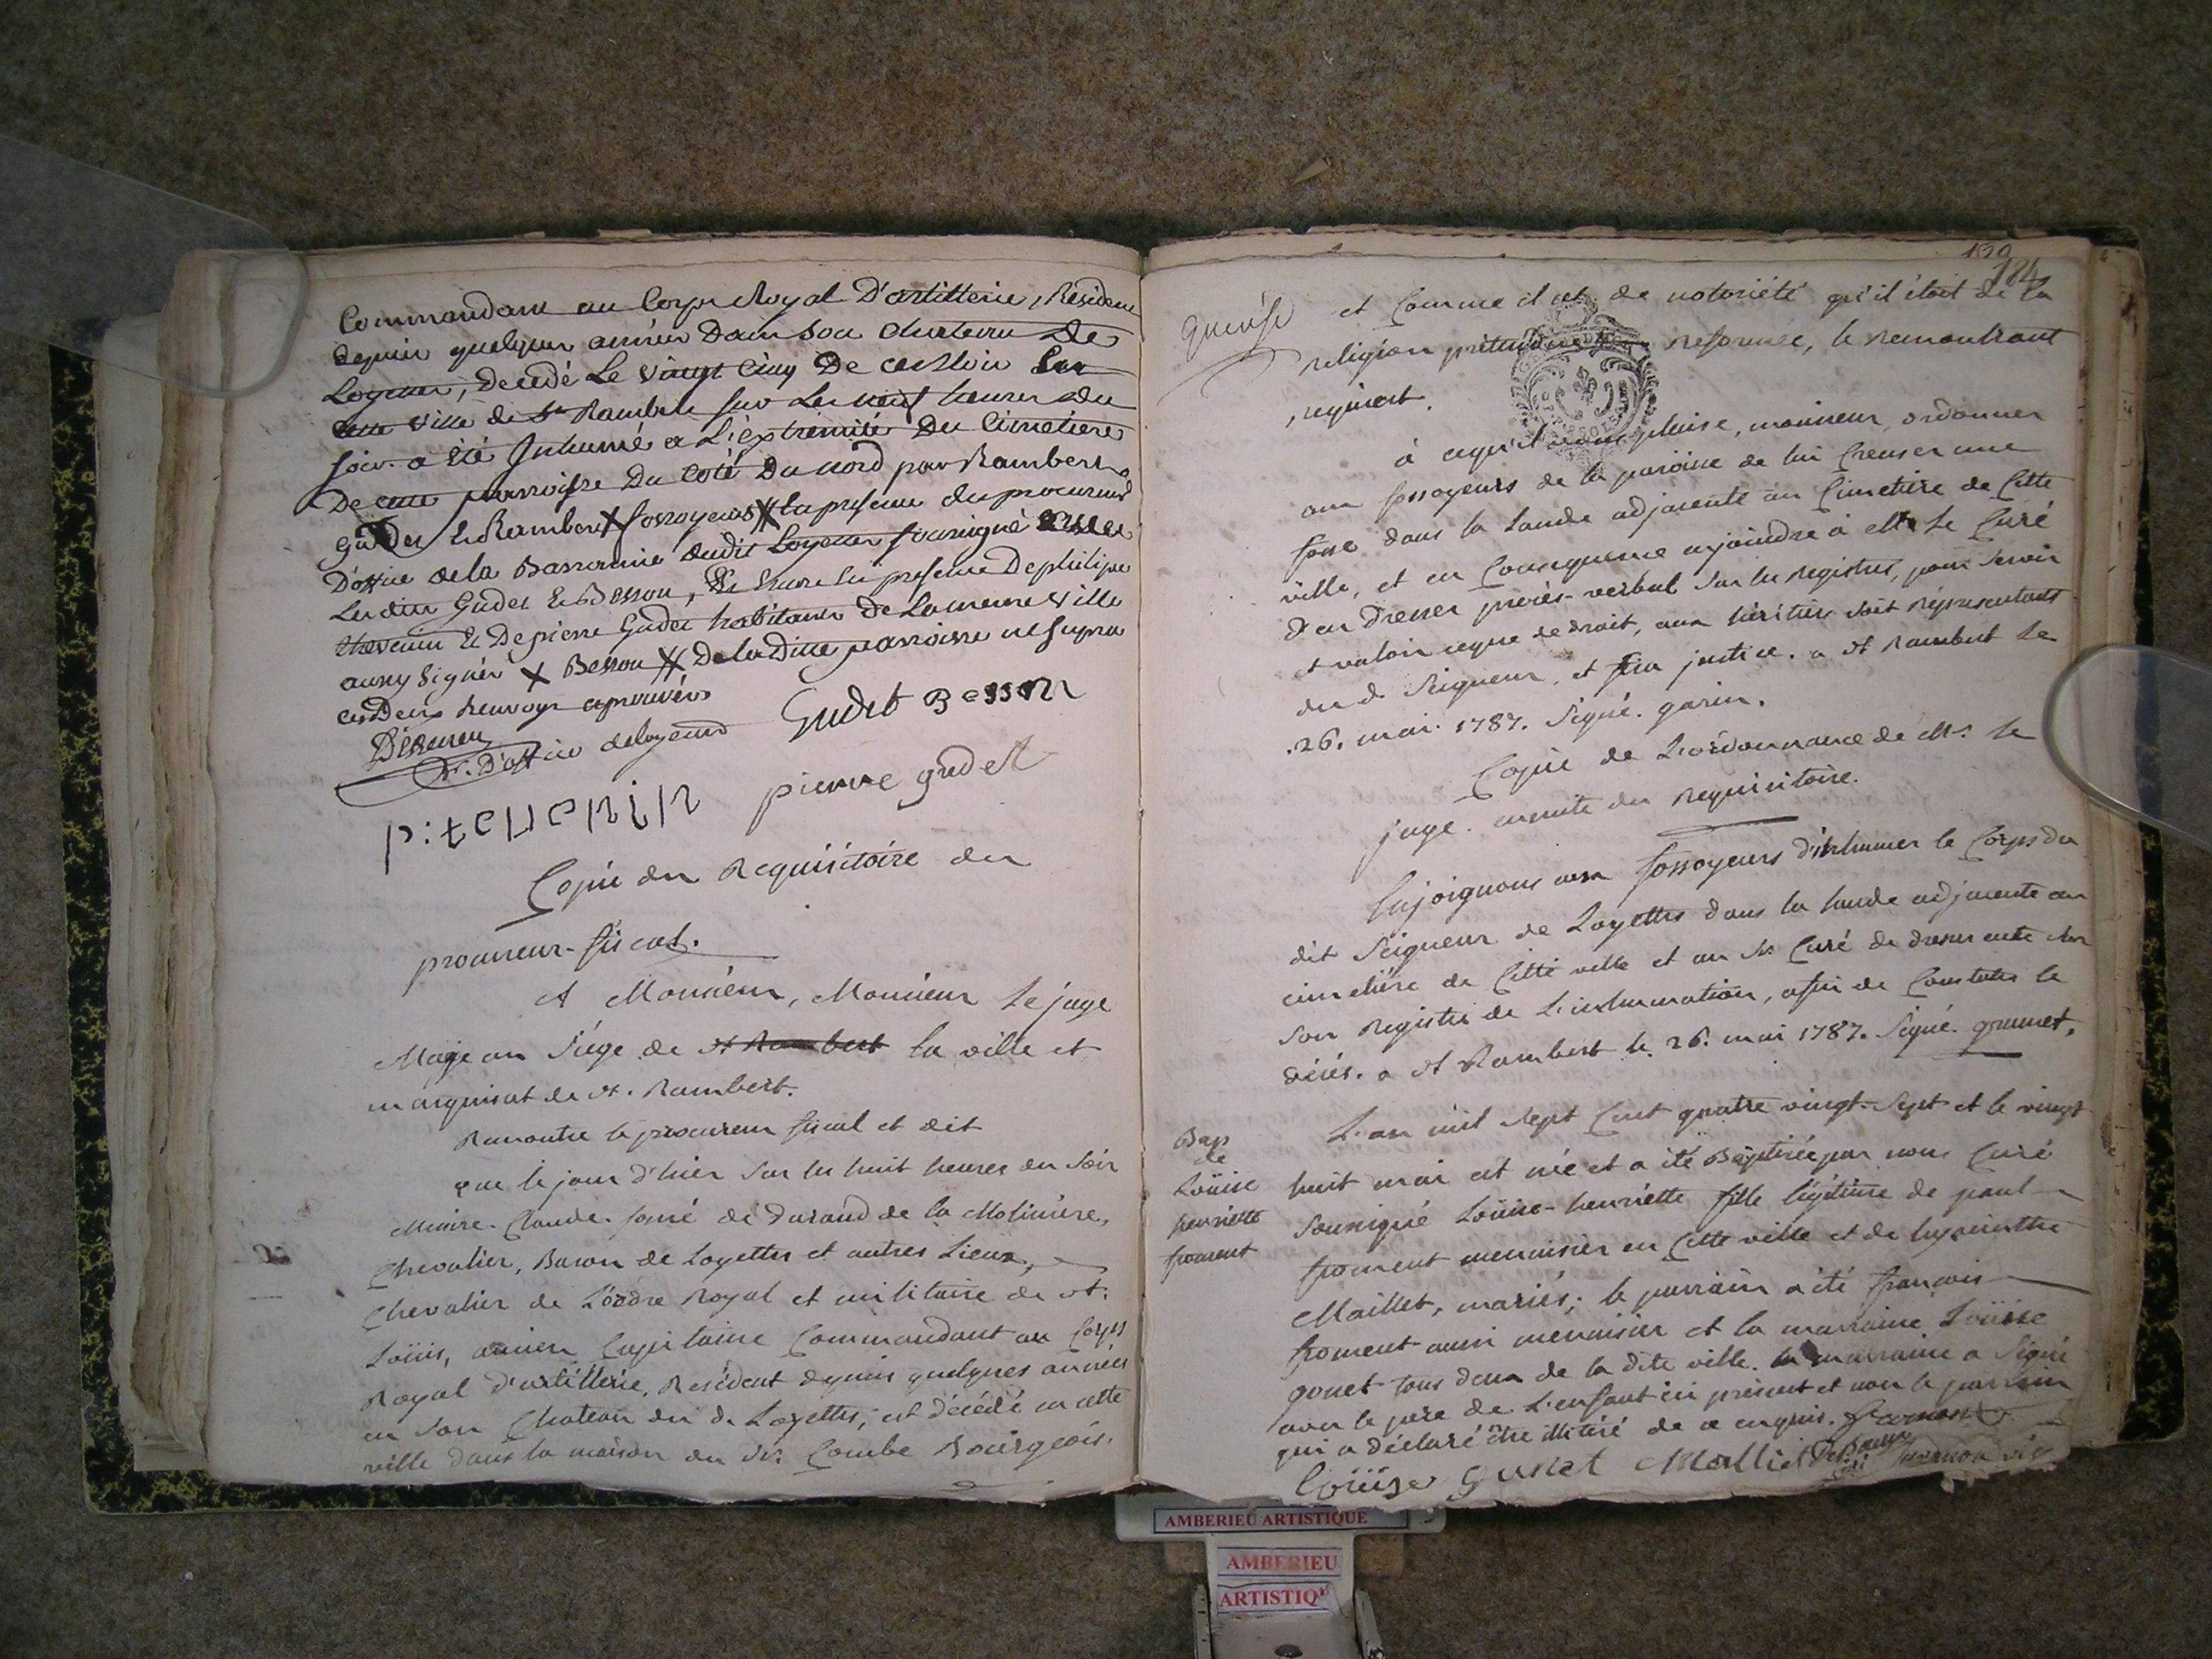 Commandant au Corps Royal D'artillerie, Résident
depuis quelques années Dans son chateau De
Loyettes, decedé Le vingt cinq De ce Mois En
cette ville de St Rambert sur Les neuf heures du
soir. a été Inhumé a L'extremité Du Cimetiere
De cette parroisse Du Coté Du nord par Rambert
Gudet & Rambert X fossoyeurs X la presence du procureur
D'office de la Baronnie dudit Loyettes soussigné
Lesdits Gudet & Besson, & En presence De philipe
thevenin & De pierre Gudet habitants de La meme Ville
aussy signés X Besson X De la Ditte parroisse ut supra
ces Deux renvoys aprouvés
Pr. D'office de Loyettes Gudet Besson
p:tevenin pierre gudet
Copie du Requisitoire du
procureur-fiscal.
A Monsieur, Monsieur Le juge
Maje au Siége de St Rambert la ville et
marquisat de St. Rambert.
Remontre le procureur fiscal et dit
que le jour d'hier sur les huit heures du soir
Messire. Claude. de Durand de la Molinière,
Chevalier, Baron de Loyettes et autres Lieux,
Chevalier de L'ordre Royal et militaire de St.
Loüis, ancien Capitaine Commandant au Corps
Royal d'artillerie, Résident depuis quelques années
en son Chateau du d. Loyettes, est décédé en cette
ville dans la maison du Sr. Combe Bourgeois.
190
184
et Comme il est de notoriété qu'il étoit de la
religion prétendue reformée, le Remontrant
requiert.
à ce qu'il vous plaise, monsieur, ordonner
aux fossoyeurs de la paroisse de lui Creuser une
fosse dans la Lande adjacente au Cimetiere de Cette
ville, et en Consequence enjoindre à Mr. le Curé
d'en Dresser procès-verbal sur les Registres, pour servir
et valoir ce que de droit, aux héritiers soit représentants
du d. Seigneur, et fera justice. a St Rambert le
.26. mai. 1787. Signé. garin.
Copie de L'ordonnance de Mr. le
juge. ensuite du Requisitoire.
Enjoignons aux fossoyeurs d'inhumer le Corps du
dit Seigneur de Loyettes dans la Lande adjacente au
cimetiére de Cette ville et au Sr. Curé de dresser acte sur
son Registre de L'inhumation, afin de Constater le
décés. a St Rambert le 26. mai 1787. Signé. grumet.
Bap
de
Loüise
henriette
froment
L'an mil Sept Cent quatre vingt-Sept et le vingt
huit mai est née et a été Baptisée par nous Curé
soussigné Loüise-henriette fille légitime de paul
froment menuisier en Cette ville et de hyacinthe
Maillet, mariés; le parrain a été françois
froment aussi menuisier et la marraine Loüise
gonet tous deux de la dite ville. la marraine a Signé
avec le père de L'enfant ici présent et non le parrain
qui a déclaré être illitéré de ce enquis. froment
Loüise Gunet Malliet
AMBERIEU ARTISTIQUE
AMBERIEU
ARTISTIQ